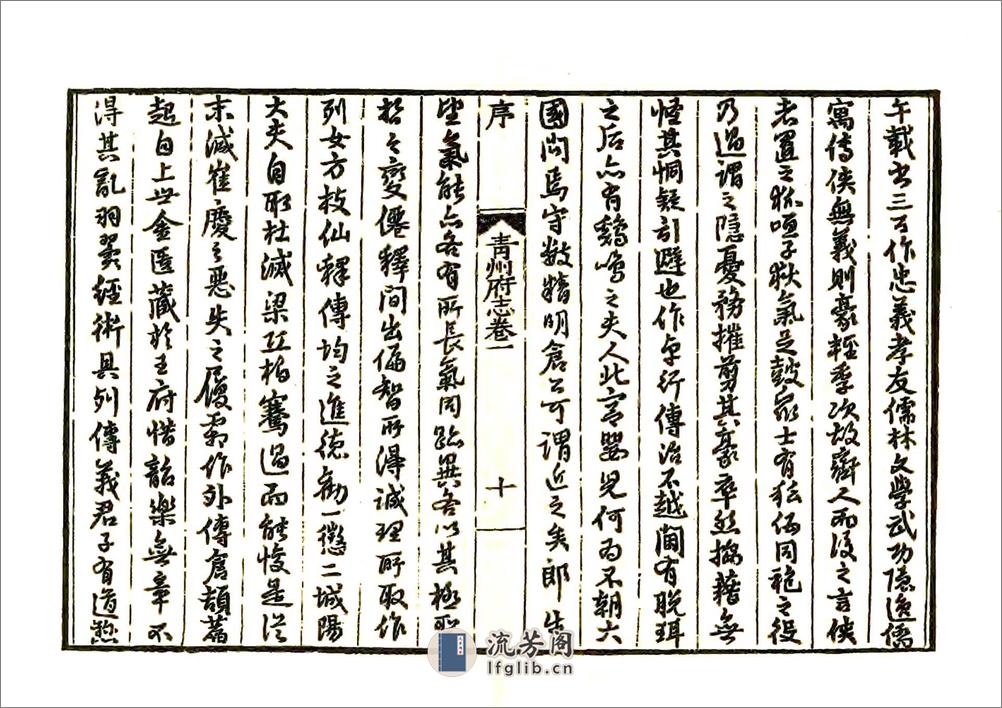 午載者三百作忠義孝友儒林文學武功隱逸儒
寓傳俠無義則豪輕季次故齊人而後之言俠
者置之孫嘔子狄氣足鼓眾士有狂伍同袍之役
乃過謂之隱憂務摧剪其豪卒然擾藉無
怪其恫疑引避也作卓行傳治不越閫有脫珥
之后亦有鷄鳴之夫人此宮嬰兒何為不朝六
國問焉守數精明倉公可謂近之矣郎生
序
青州府志卷一
十
望氣能亦各有所長氣同跡異各以其極
哲之變僊釋間出偏智所得誠理所取作
列女方技仙釋傳均之進德勸一懲二城陽
大夫自取杜滅梁丘柏騫過而能悛是從
末減崔慶之惡失之履霜作外傳倉頡
起自上世金匱藏於王府惜韶樂無章不
得其亂羽翼經術具列傳義君子有道懸
流芳阁
lfglib.cn